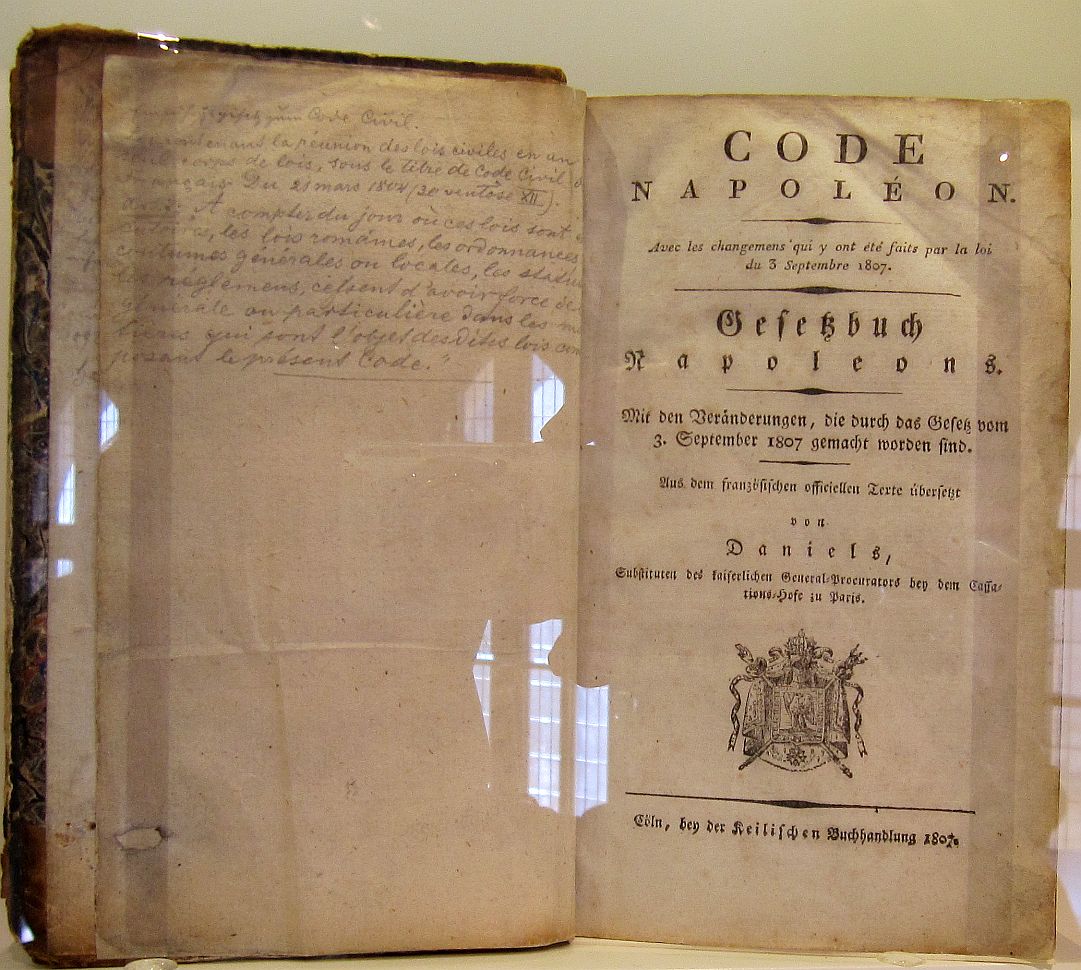 zum Code Civil.
contenant la réunion des lois civiles en un
seul corps de lois, sous le titre de Code Civil
Du 21 mars 1804 (30 ventôse XII).
A compter du jour où ces lois sont
les lois romaines, les ordonnances
coutumes générales ou locales, les
les réglemens, cessent d'avoir force de
générale ou particulière dans les ma
tières qui font l'objet des dites lois com
posant le présent Code."
CODE
NAPOLÉON.
Avec les changemens qui y ont été faits par la loi
du 3 Septembre 1807.
Gesetzbuch
Napoleons.
Mit den Veränderungen, die durch das Gesetz vom
3. September 1807 gemacht worden sind.
Aus dem französischen officiellen Texte übersetzt
von
Daniels,
Substituten des kaiserlichen General-Procurators bey dem Cassa-
tions-Hofe zu Paris.
Cöln, bey der Keilischen Buchhandlung